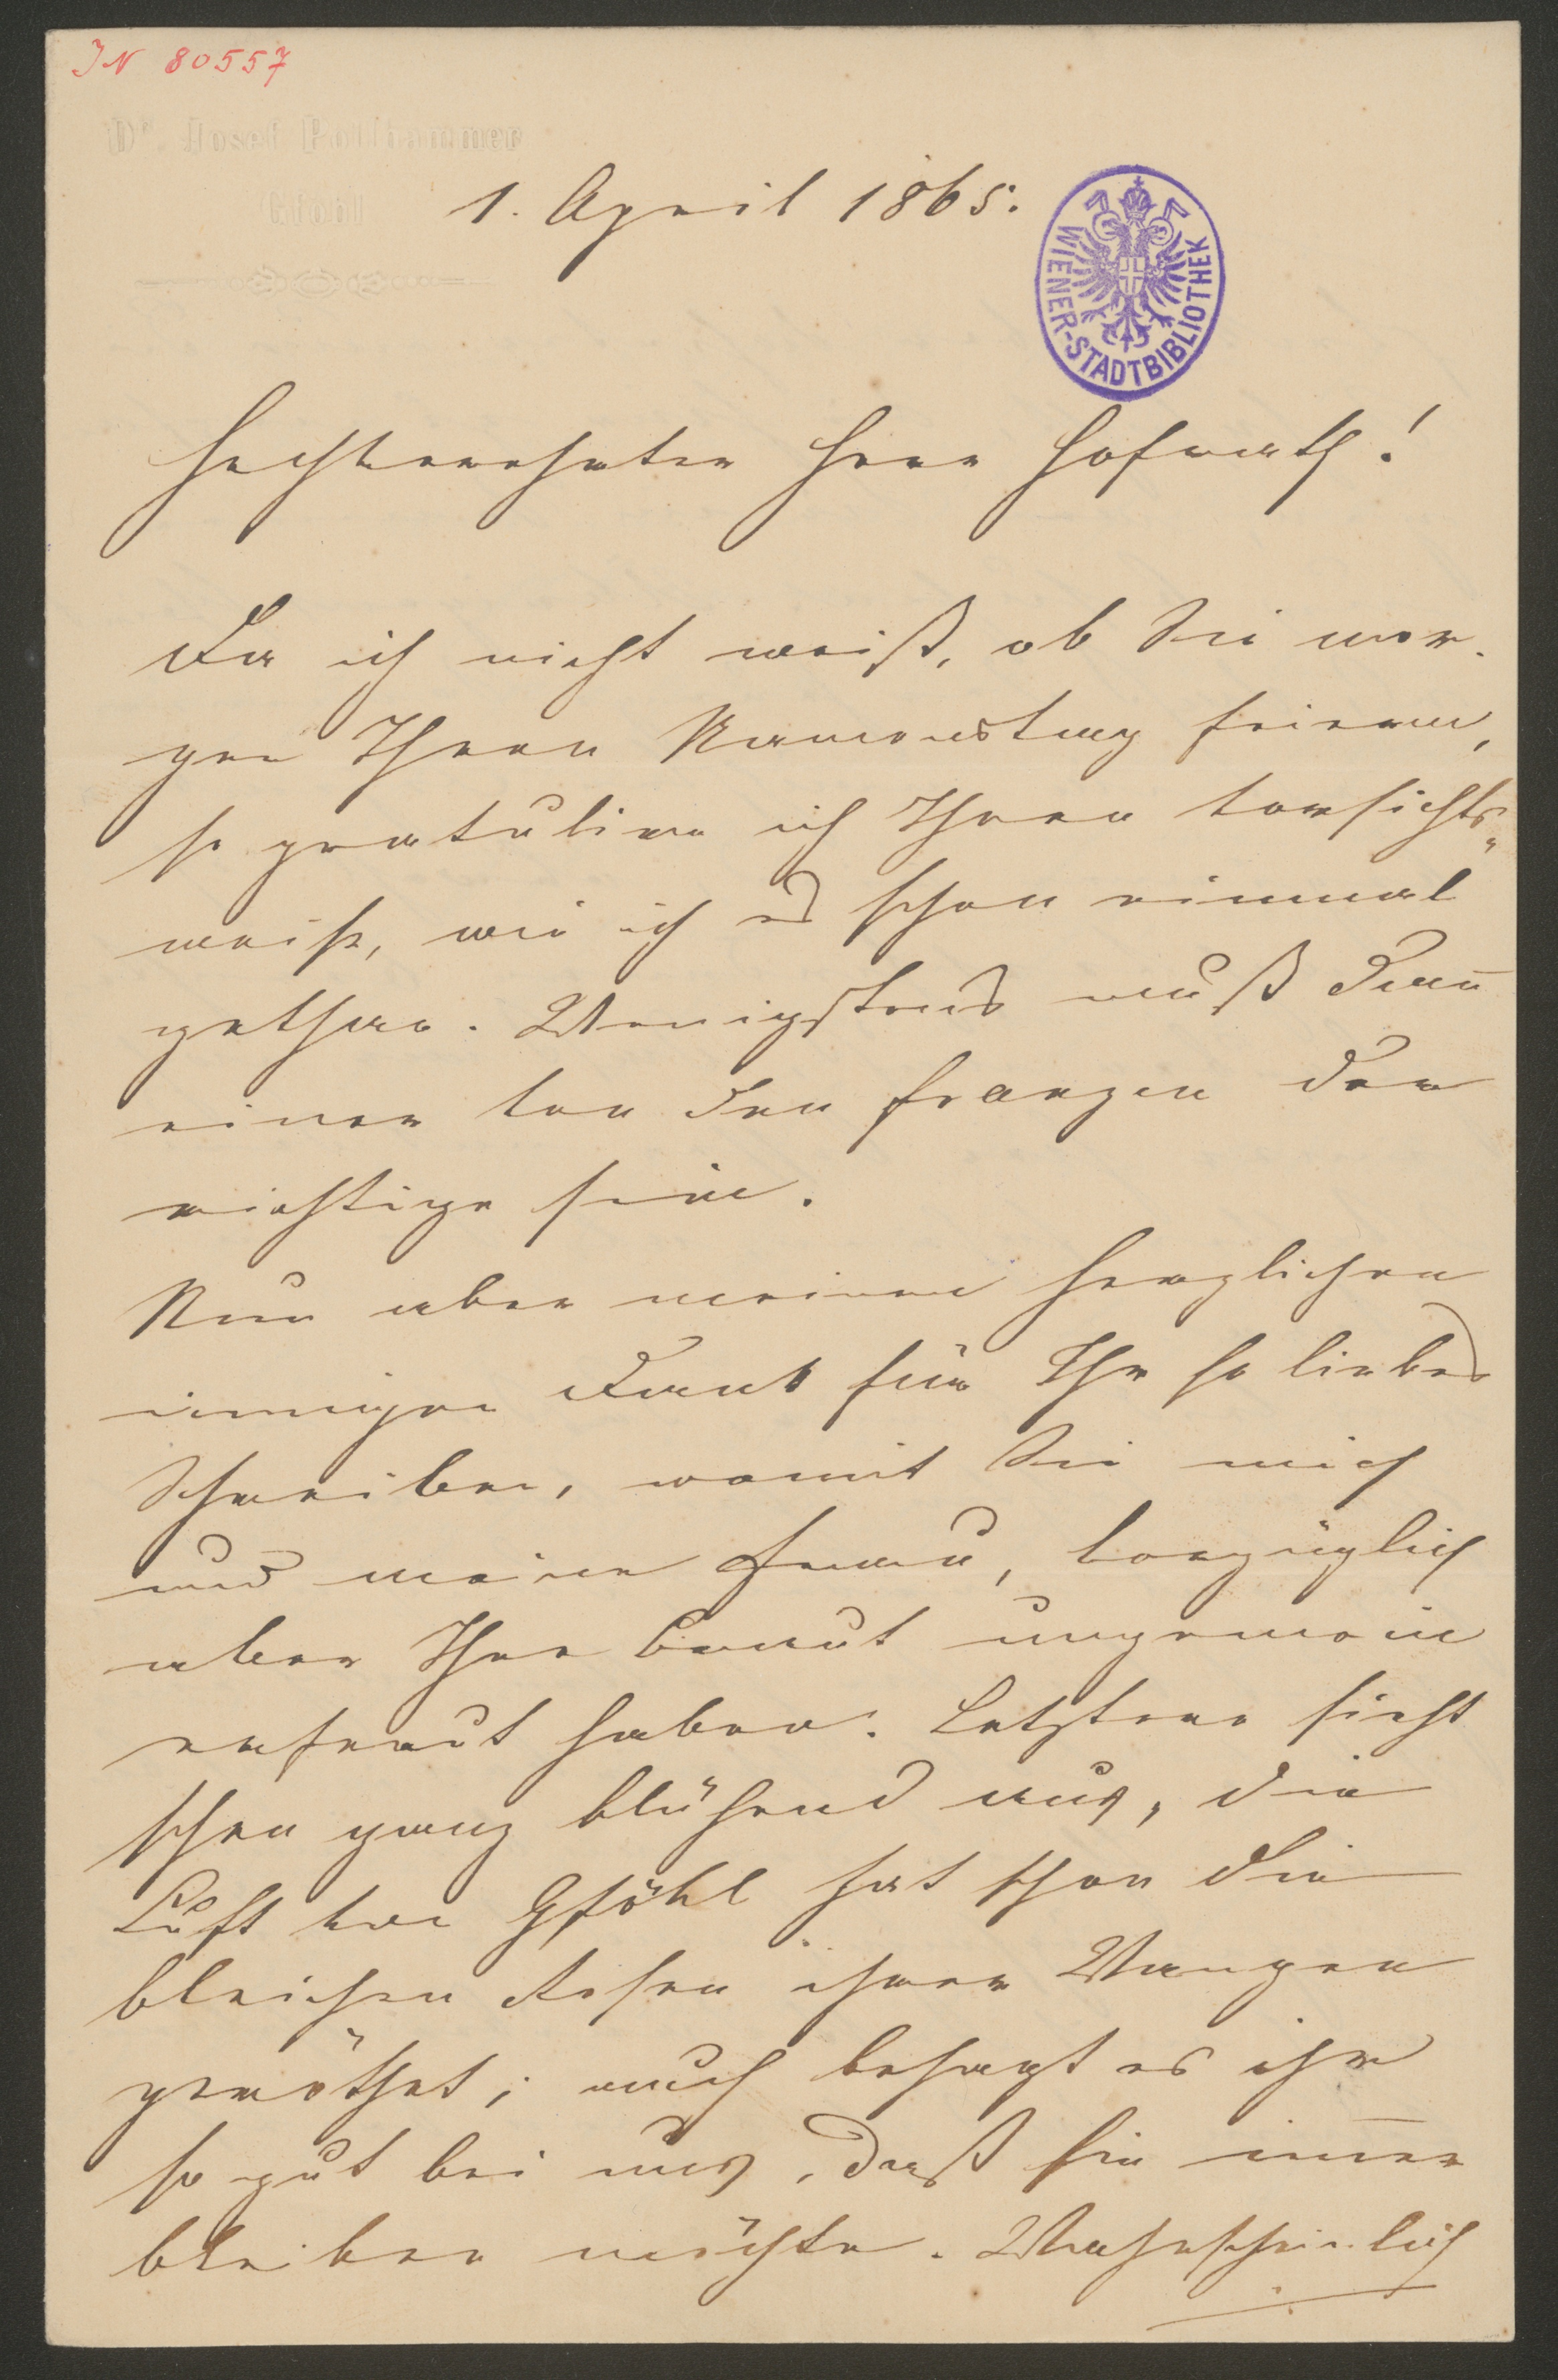 JN 80557
Dr. Josef Pollhammer
Gföhl
1. April 1865.
WIENER-STADTBIBLIOTHEK
Hochverehrter Herr Hofrath!
Da ich nicht weiß, ob Sie mor-
gen Ihren Namenstag feieren,
so gratulire ich Ihnen vorsichts-
weise, wie ich es schon einmal
gethan. Wenigstens muß dan̄
einer von den franzen der
richtige sein.
Nun aber meinen herzlichen
innigen Dank für Ihr so liebes
Schreiben, womit Sie mich
und meine Frau, vorzüglich
aber Ihre Braut ungemein
erfreut haben. Letztere sieht
schon ganz blühend aus, die
Luft von Gföhl hat schon die
bleichen Rosen ihrer Wangen
geröthet; auch behagt es ihr
so gut bei uns, daß sie im̄er
bleiben möchte. Wahrscheinlich